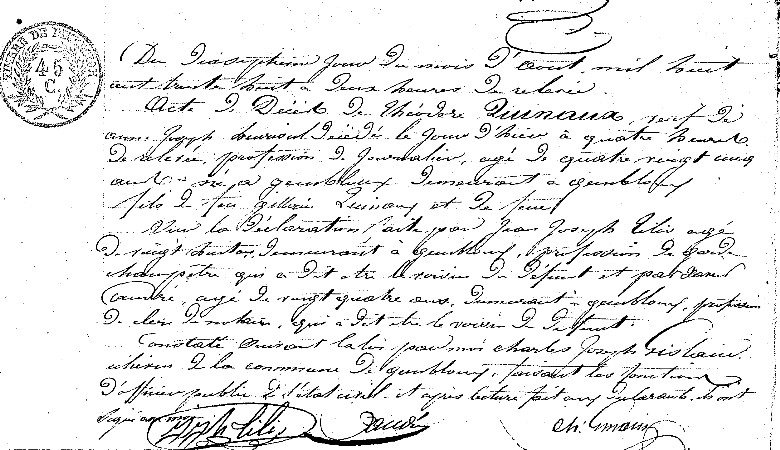 45
C.
Du dix septieme jour du mois d'aout, mil huit
cent trente huit à deux heures de relevée.
Acte de Décès de théodore Quinaux, veuf de
anne Joseph décédé le jour d'hier à quatre heures
de relevée, profession de journalier, agé de quatre vingt cinq
ans né à gembloux demeurant à gembloux
fils de feu Quinaux et de feue
Sur la Déclaration faite par Jean Joseph agé
de vingt huit ans, demeurant à gembloux, profession de garde
champêtre qui a dit être le voisin du défunt et par
agé de vingt quatre ans, demeurant à gembloux, profession
de clerc de notaire, qui a dit etre le voisin de défunt.
Constaté suivant la loi par moi charles Joseph
de la commune de gembloux, faisant les fonctions
d'officier public de l'état civil. et après lecture fait aux déclarants, ils ont
signé avec moi